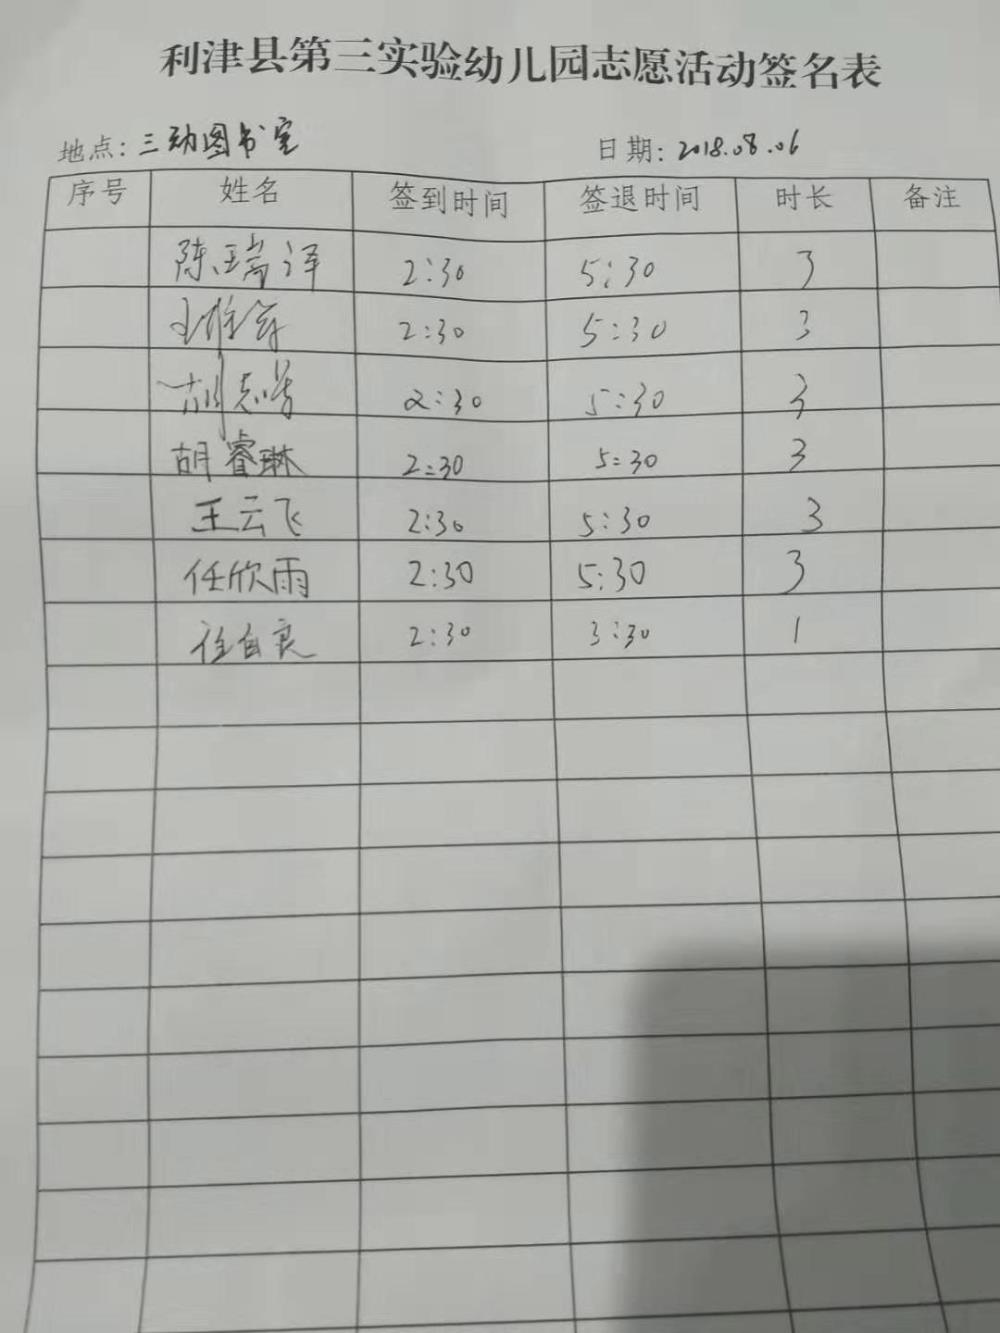 利津县第三实验幼儿园志愿活动签名表
地点: 三幼图书室 日期: 2018.08.06
序号 姓名 签到时间 签退时间 时长 备注
陈瑞泽 2:30 5:30 3
2:30 5:30 3
胡志 2:30 5:30 3
胡睿琳 2:30 5:30 3
王云飞 2:30 5:30 3
任欣雨 2:30 5:30 3
任自良 2:30 3:30 1